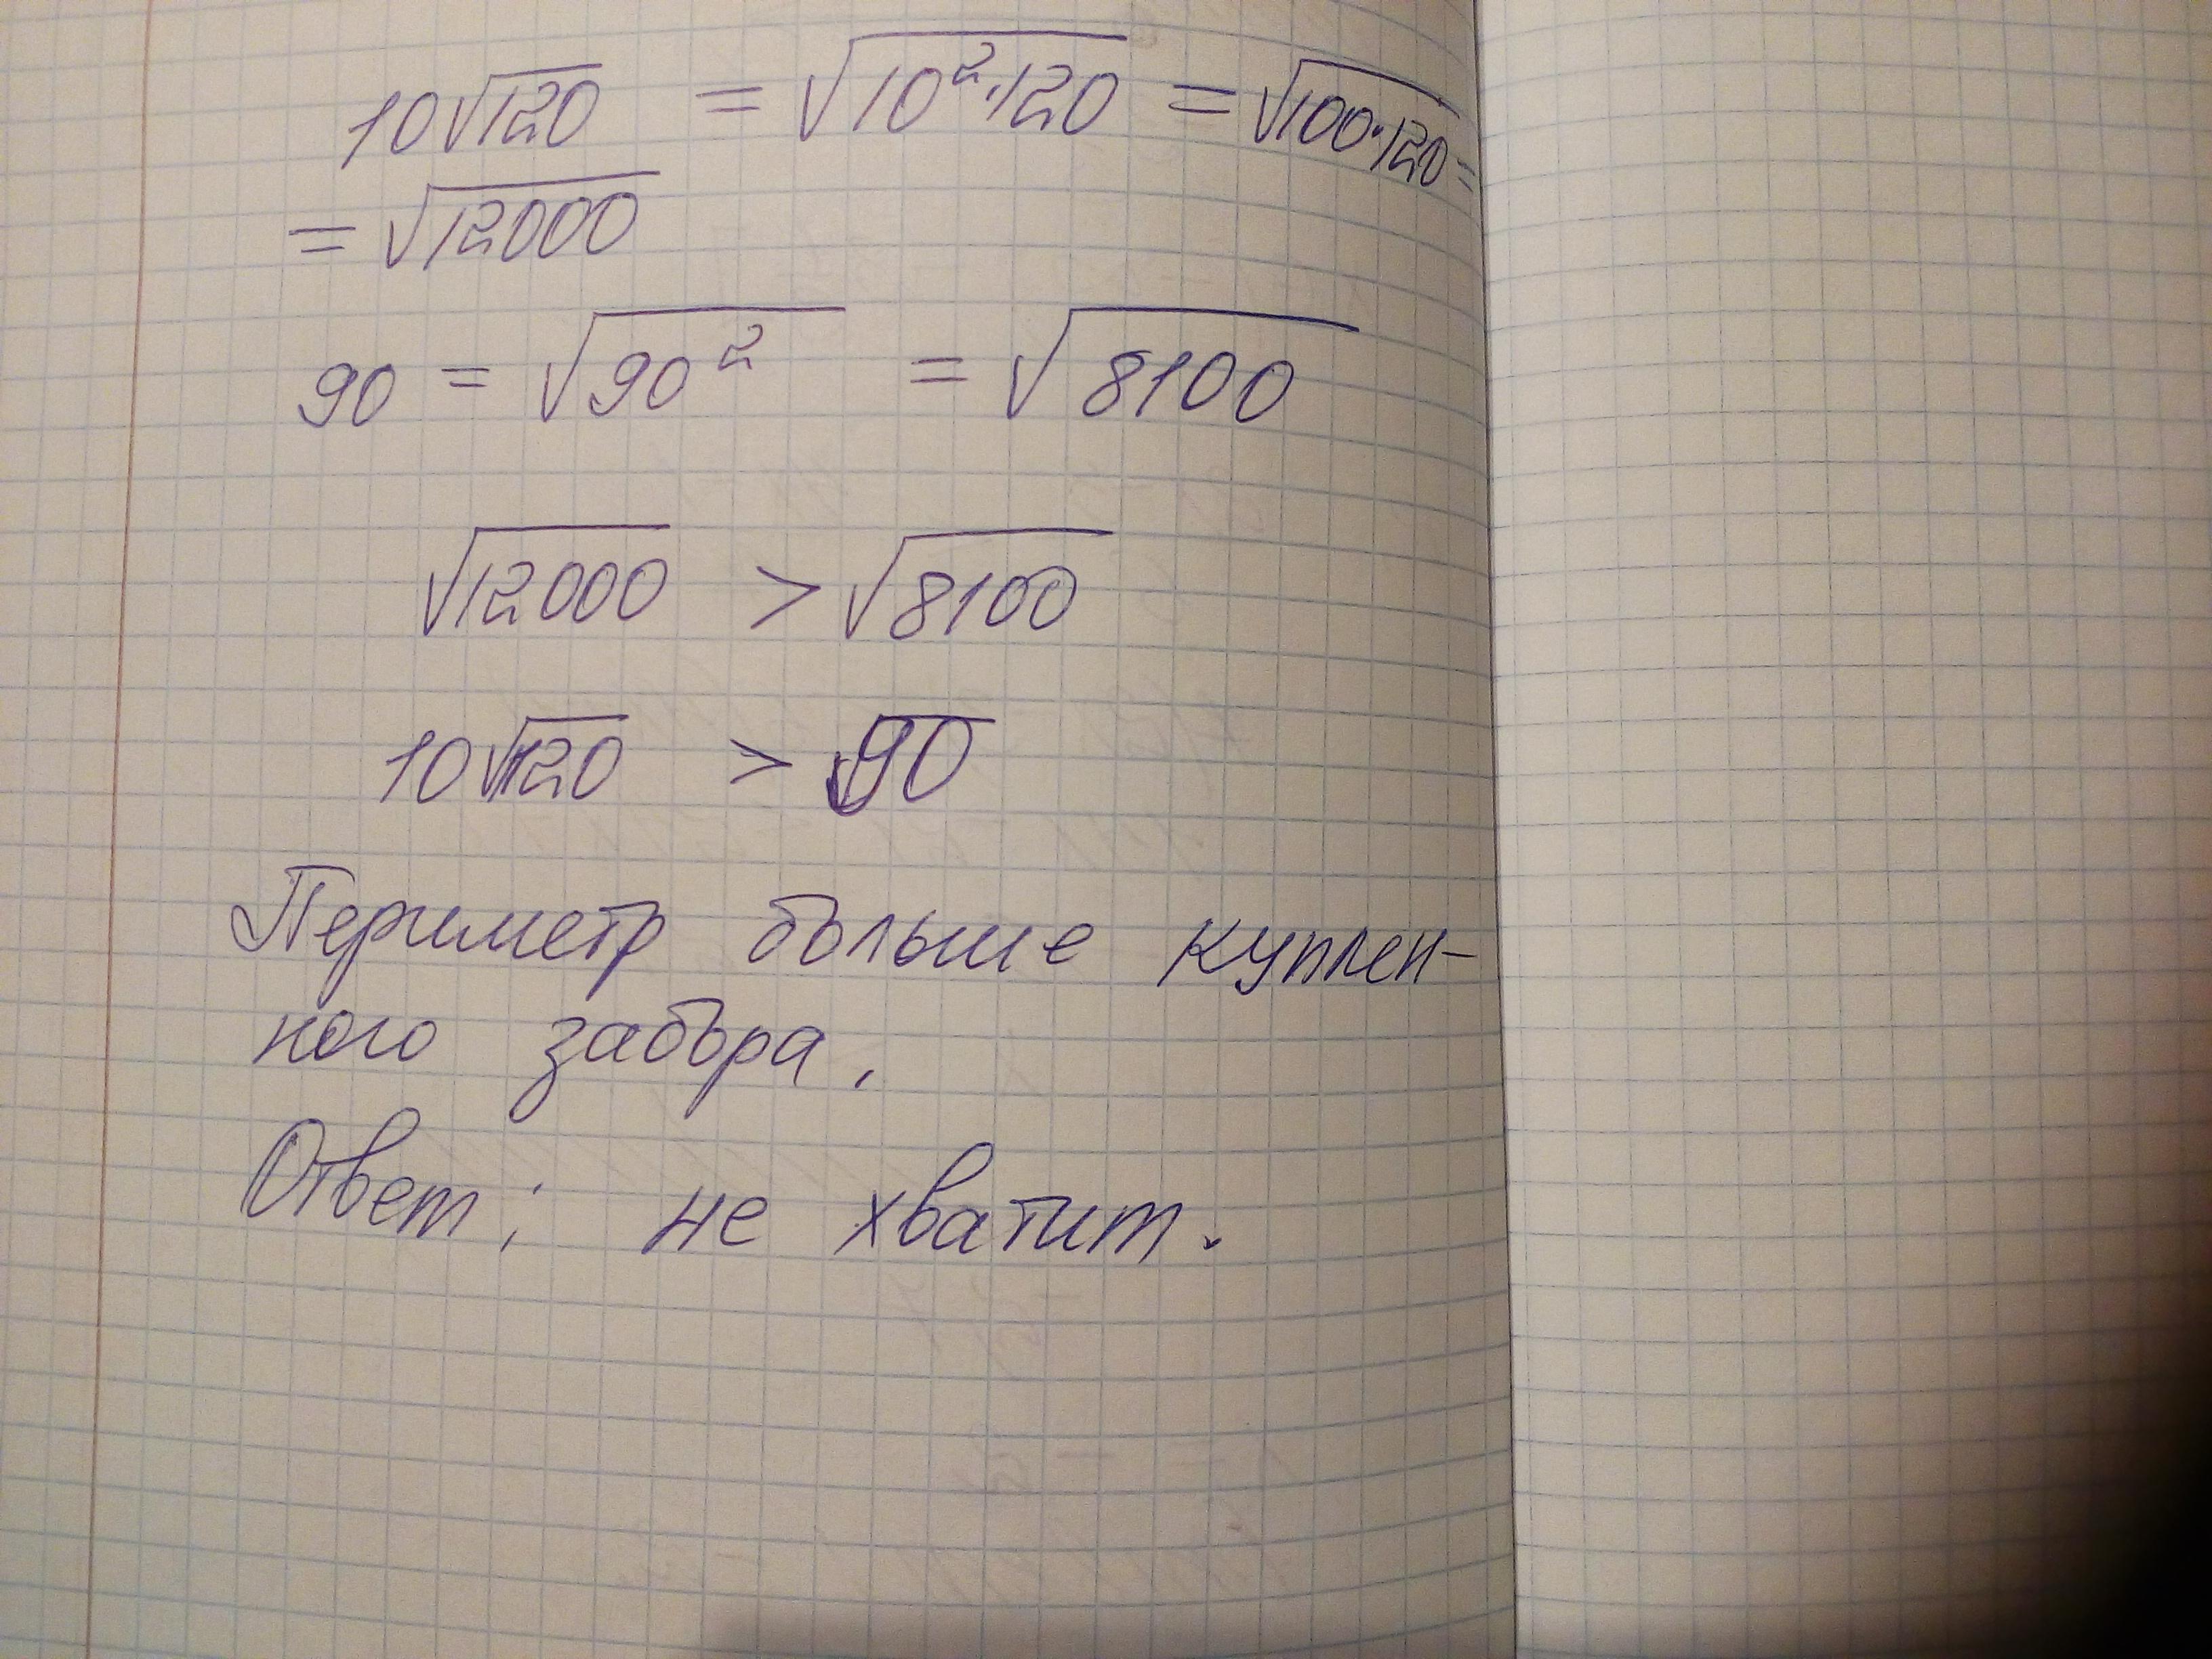 10√120 = √10²·120 = √100·120 =
= √12000
90 = √90² = √8100
√12000 > √8100
10√120 > √90
Периметр больше куплен-
ного забора.
Ответ: не хватит.